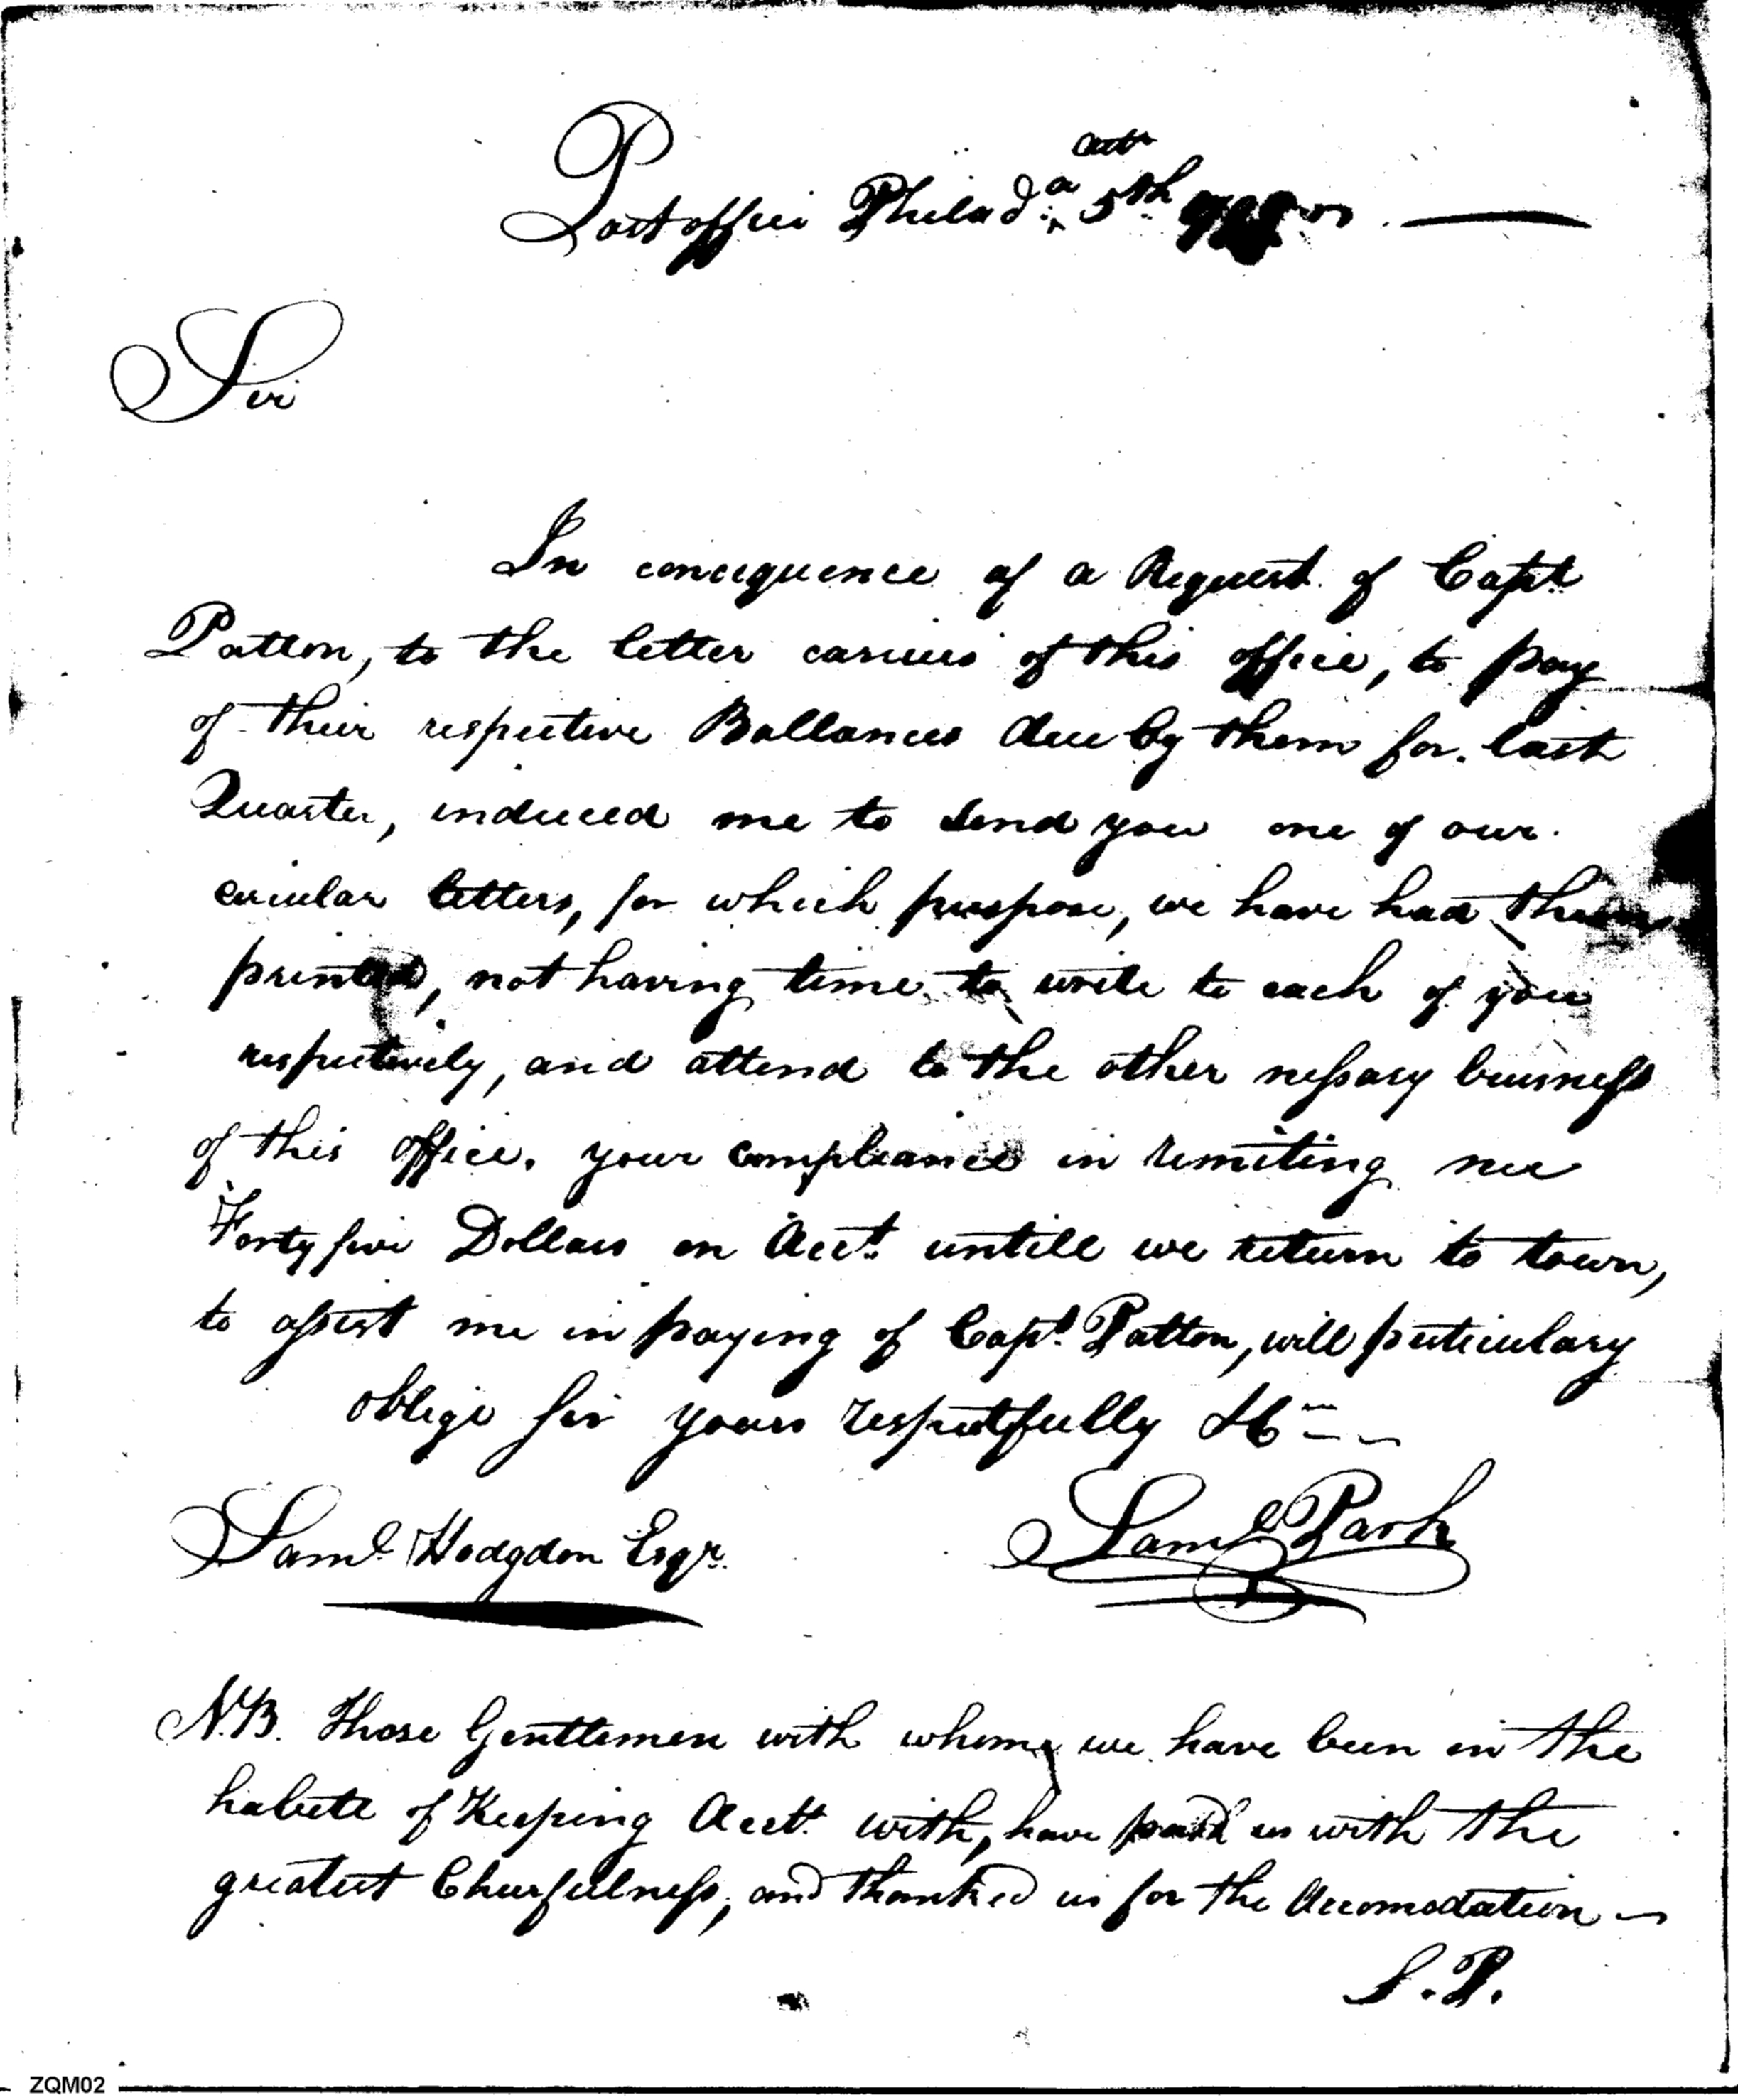 Octr
Post office Philada. 5th
Sir
In consequence of a Request of Capt.
Patton, to the letter cariers of this office, to pay
of their respective Ballances due by them for last
Quarter, induced me to send you one of our
circular letters, for which purpose, we have had them
printed, not having time to write to each of you
respectively, and attend to the other nessary business
of this office. your compliance in remiting me
Forty five Dollars on Acct. untill we return to town,
to assist me in paying of Capt. Patton, will puticulary
oblige Sir yours respectfully &c
Saml. Hodgdon Esqr. Saml Park
N.B. Those Gentlemen with whom we have been in the
habite of Keeping Acctt. with, have paid us with the
greatest Chearfulness, and thanked us for the Accomodation
S. P.
ZQM02